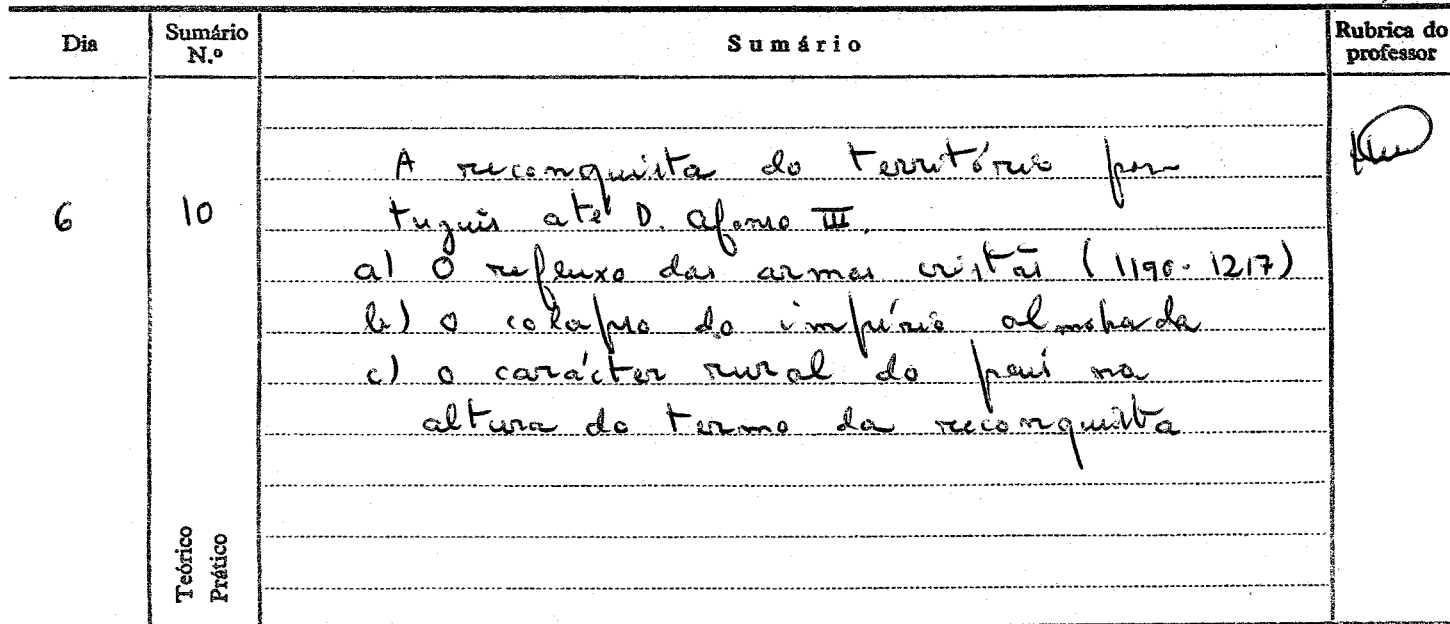 Dia
Sumário N.º
Sumário
Rubrica do professor
6
10
A reconquista do território por-
tuguês até D. Afonso III.
a) O refluxo das armas cristãs (1190-1217)
b) o colapso do império almohada
c) o carácter rural do país na
altura do termo da reconquista
Teórico
Prático